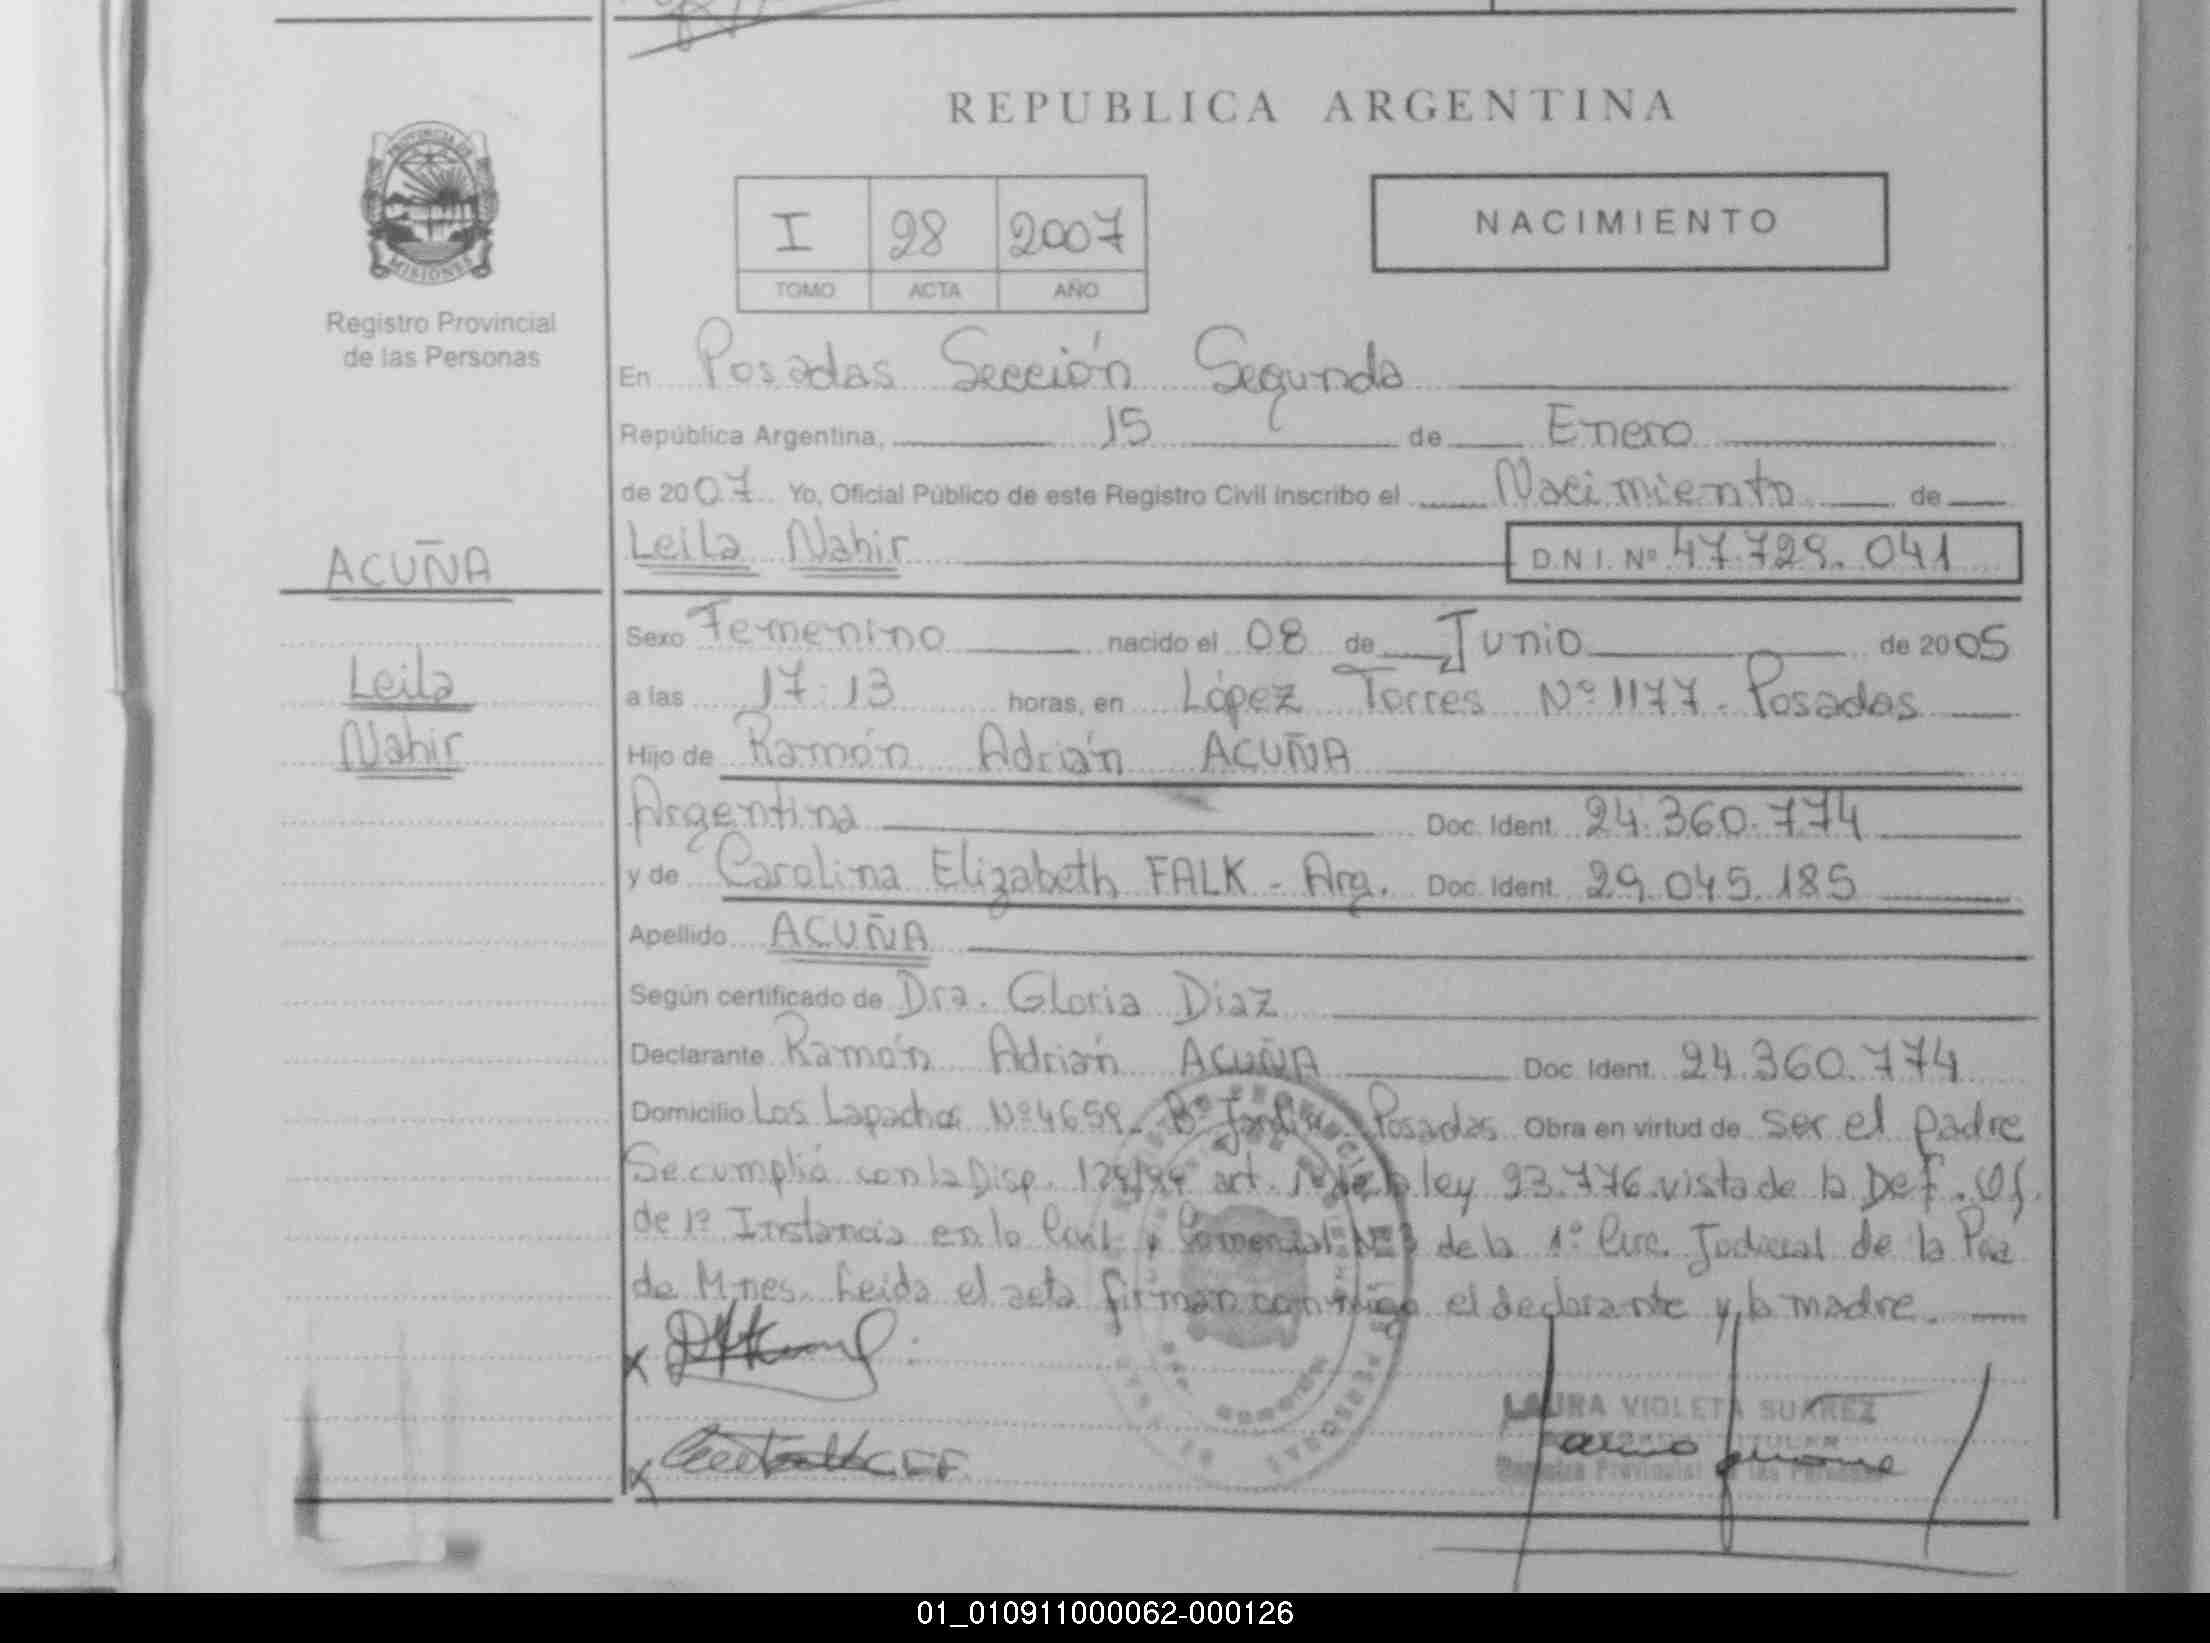 REPUBLICA ARGENTINA
PROVINCIA DE
MISIONES
Registro Provincial
de las Personas
I 28 2007
TOMO ACTA AÑO
NACIMIENTO
En Posadas Sección Segunda
República Argentina, 15 de Enero
de 2007 Yo, Oficial Público de este Registro Civil inscribo el Nacimiento de
ACUÑA
Leila Nahir D.N.I. Nº 47.729.041
Sexo Femenino nacido el 08 de Junio de 2005
Leila
a las 17:13 horas, en López Torres Nº 1177 - Posadas
Nahir
Hijo de Ramón Adrián ACUÑA
Argentina Doc. Ident. 24.360.774
y de Carolina Elizabeth FALK - Arg. Doc. Ident. 29.045.185
Apellido ACUÑA
Según certificado de Dra. Gloria Diaz
Declarante Ramón Adrián ACUÑA Doc. Ident. 24.360.774
Domicilio Los Lapachos Nº 4659 - Bº Posadas Obra en virtud de ser el padre
Se cumplió con la Disp. art. ley 23.776 vista de la Def. Of.
de 1º Instancia en lo Civil y Comercial Nº 3 de la 1º Circ. Judicial de la Pcia
de Mnes. Leida el acta firman conmigo el declarante y la madre.
X
X CEF
LAURA VIOLETA SUAREZ
TITULAR
Registro Provincial de las Personas
01_010911000062-000126